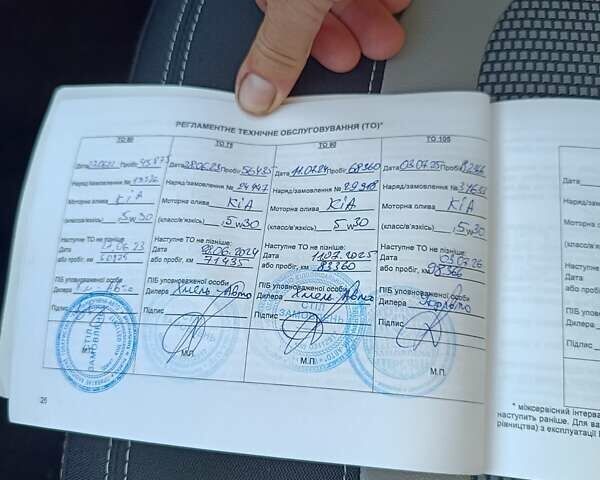 РЕГЛАМЕНТНЕ ТЕХНІЧНЕ ОБСЛУГОВУВАННЯ (ТО)*
ТО 60
Дата Пробіг 45873
Наряд/замовлення №
Моторна олива KIA
(класс/в'язкість) 5w30
Наступне ТО не пізніше:
Дата .06.23
або пробіг, км 60875
ПІБ уповноваженої особи
Дилера
Підпис
М.П.
ТО 75
Дата 28.06.23 Пробіг 56435
Наряд/замовлення № 24947
Моторна олива KIA
(класс/в'язкість) 5w30
Наступне ТО не пізніше:
Дата 28.06.2024
або пробіг, км 71435
ПІБ уповноваженої особи
Дилера Хмель Авто
Підпис
М.П.
ТО 90
Дата 11.07.24 Пробіг 68360
Наряд/замовлення № 29918
Моторна олива KIA
(класс/в'язкість) 5w30
Наступне ТО не пізніше:
Дата 11.07.2025
або пробіг, км 83360
ПІБ уповноваженої особи
Дилера Хмель Авто
Підпис
М.П.
ТО 105
Дата 03.07.25 Пробіг
Наряд/замовлення №
Моторна олива KIA
(класс/в'язкість) 5w30
Наступне ТО не пізніше:
Дата 03.07.26
або пробіг, км 98366
ПІБ уповноваженої особи
Дилера
Підпис
М.П.
26
Дата
Наряд/замовл
Моторна ол
(класс/в'язк
Наступне
Дата
або проб
ПІБ упов
Дилера
Підпис
* міжсервісний інтерва
наступить раніше. Для ва
рівництва) з експлуатації